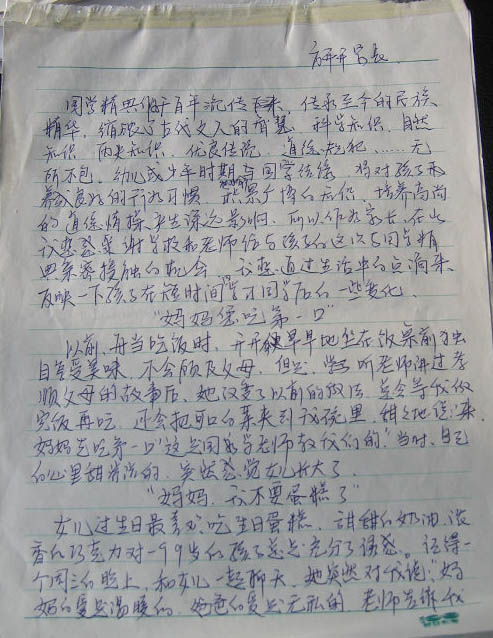 开开家长
国学精典化千百年流传下来，传承至今的民族
精华，缩短了古代文人的智慧，科学知识，自然
知识，历史知识，优良传统，道德规范……无
所不包，幼儿或少年时期与国学结缘，将对孩子两
养成良好的行为习惯，积累广博的知识，培养高尚
的道德情操产生深远影响。所以作为家长，在此
我感谢学校和老师给与孩子们这次与国学精
典亲密接触的机会，我想通过生活中的点滴来
反映一下孩子在短时间学习国学后的一些变化。
"妈妈您吃第一口"
以前，每当吃饭时，开开便早早地坐在饭桌前独
自享受美味，不会顾及父母，但是，听老师讲过孝
顺父母的故事后，她改变了以前的做法，总会等我做
完饭再吃，还会把可口的菜夹到我碗里，甜甜地说"来，
妈妈先吃第一口"这是国学老师教我们的."当时，自己
的心里甜滋滋的，突然感觉女儿长大了.
"妈妈，我不要蛋糕了"
女儿过生日最喜欢吃生日蛋糕，甜甜的奶油，浓
香的巧克力对一个9岁的孩子总是充分了诱惑。记得一
个周三的晚上，和女儿一起聊天，她突然对我说："妈
妈的爱是温暖的，爸爸的爱是无私的，老师告诉我